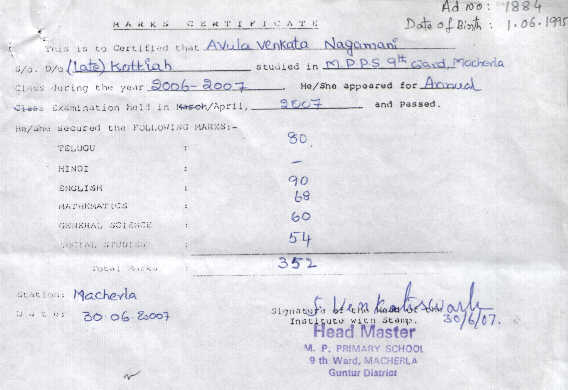 Ad no: 1884
MARKS CERTIFICATE
Date of Birth: 1.06.1995
This is to Certified that Avula Venkata Nagamani
S/o. D/o (Late) Kottiah studied in M.P.P.S 9th ward, Macherla
Class during the year 2006-2007 He/She appeared for Annual
Class Examination held in March/April, 2007 and Passed.
He/She secured the FOLLOWING MARKS:-
TELUGU : 80
HINDI : —
ENGLISH : 90
MATHEMATICS : 68
GENERAL SCIENCE : 60
SOCIAL STUDIES : 54
Total Marks : 352
Station: Macherla
Date: 30.06.2007
Signature of the Head of the
Institute with Stamp. 30/6/07.
Head Master
M. P. PRIMARY SCHOOL
9 th Ward, MACHERLA
Guntur District